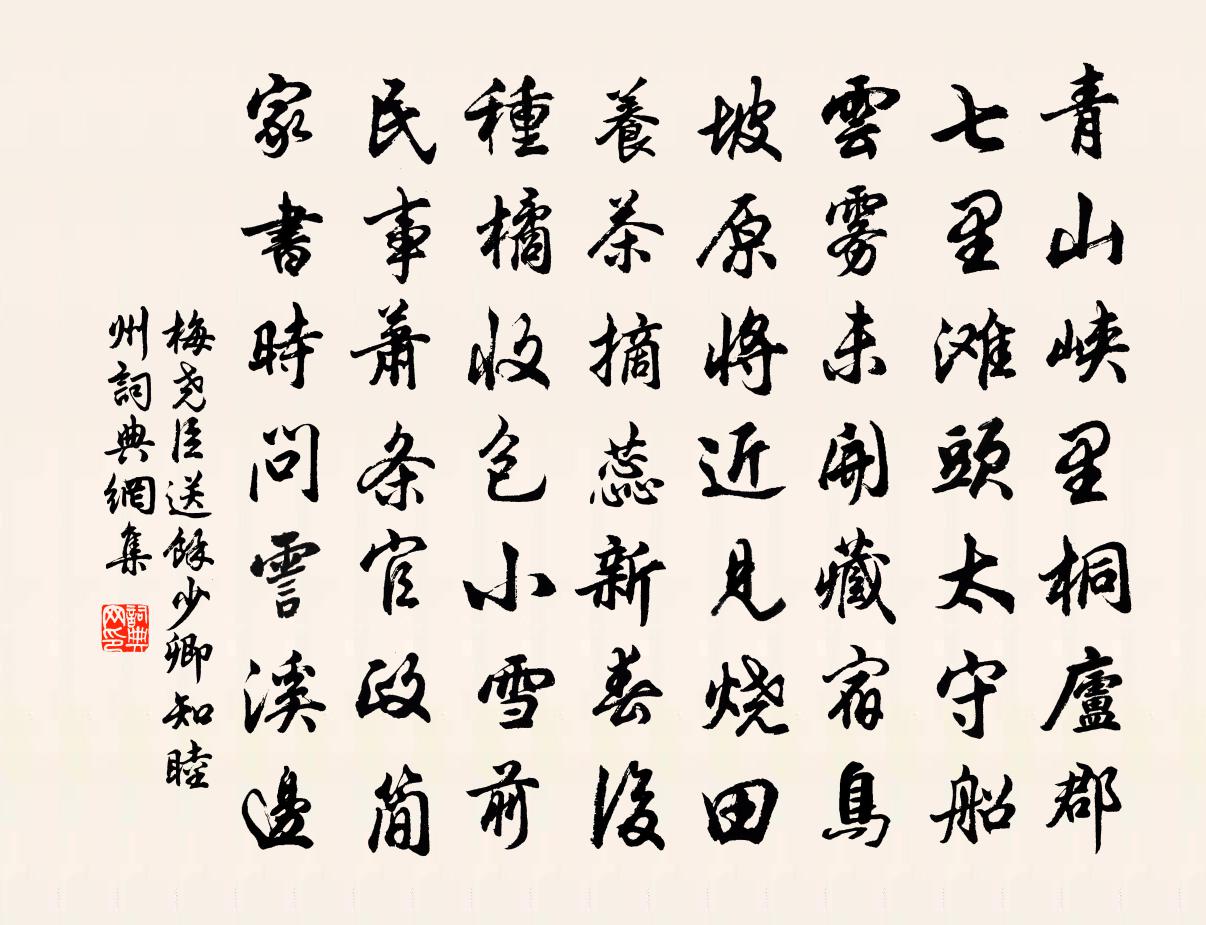 青山峡里桐廬郡
七里滩頭太守船
雲雾未開藏宿鳥
坡原将近見烧田
養茶摘蕊新春後
種橘收包小雪前
民事萧条官政简
家書時問霅溪邊
梅尧臣送餘少卿知睦
州詞典網集
詞典网印